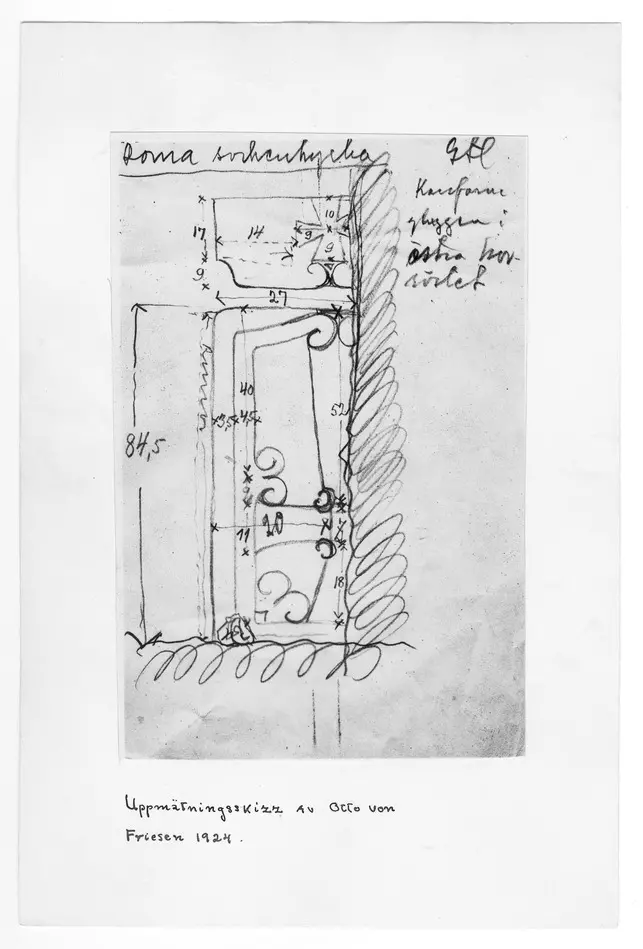 Roma sockenkyrka
17
14
10
9
9
9
27
84,5
40
3,5
4,5
52
20
11
18
östra kor-
Uppmätningsskizz av Otto von
Friesen 1924.